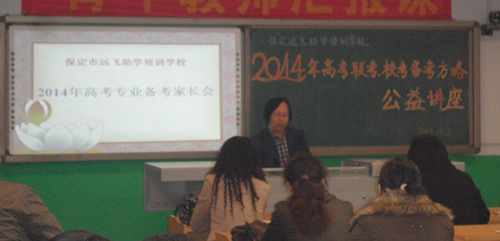 青年教师汇报课
保定市远飞助学培训学校
2014年高考专业备考家长会
保定远飞助学培训学校
2014年高考联考、校考备考方略
公益讲座